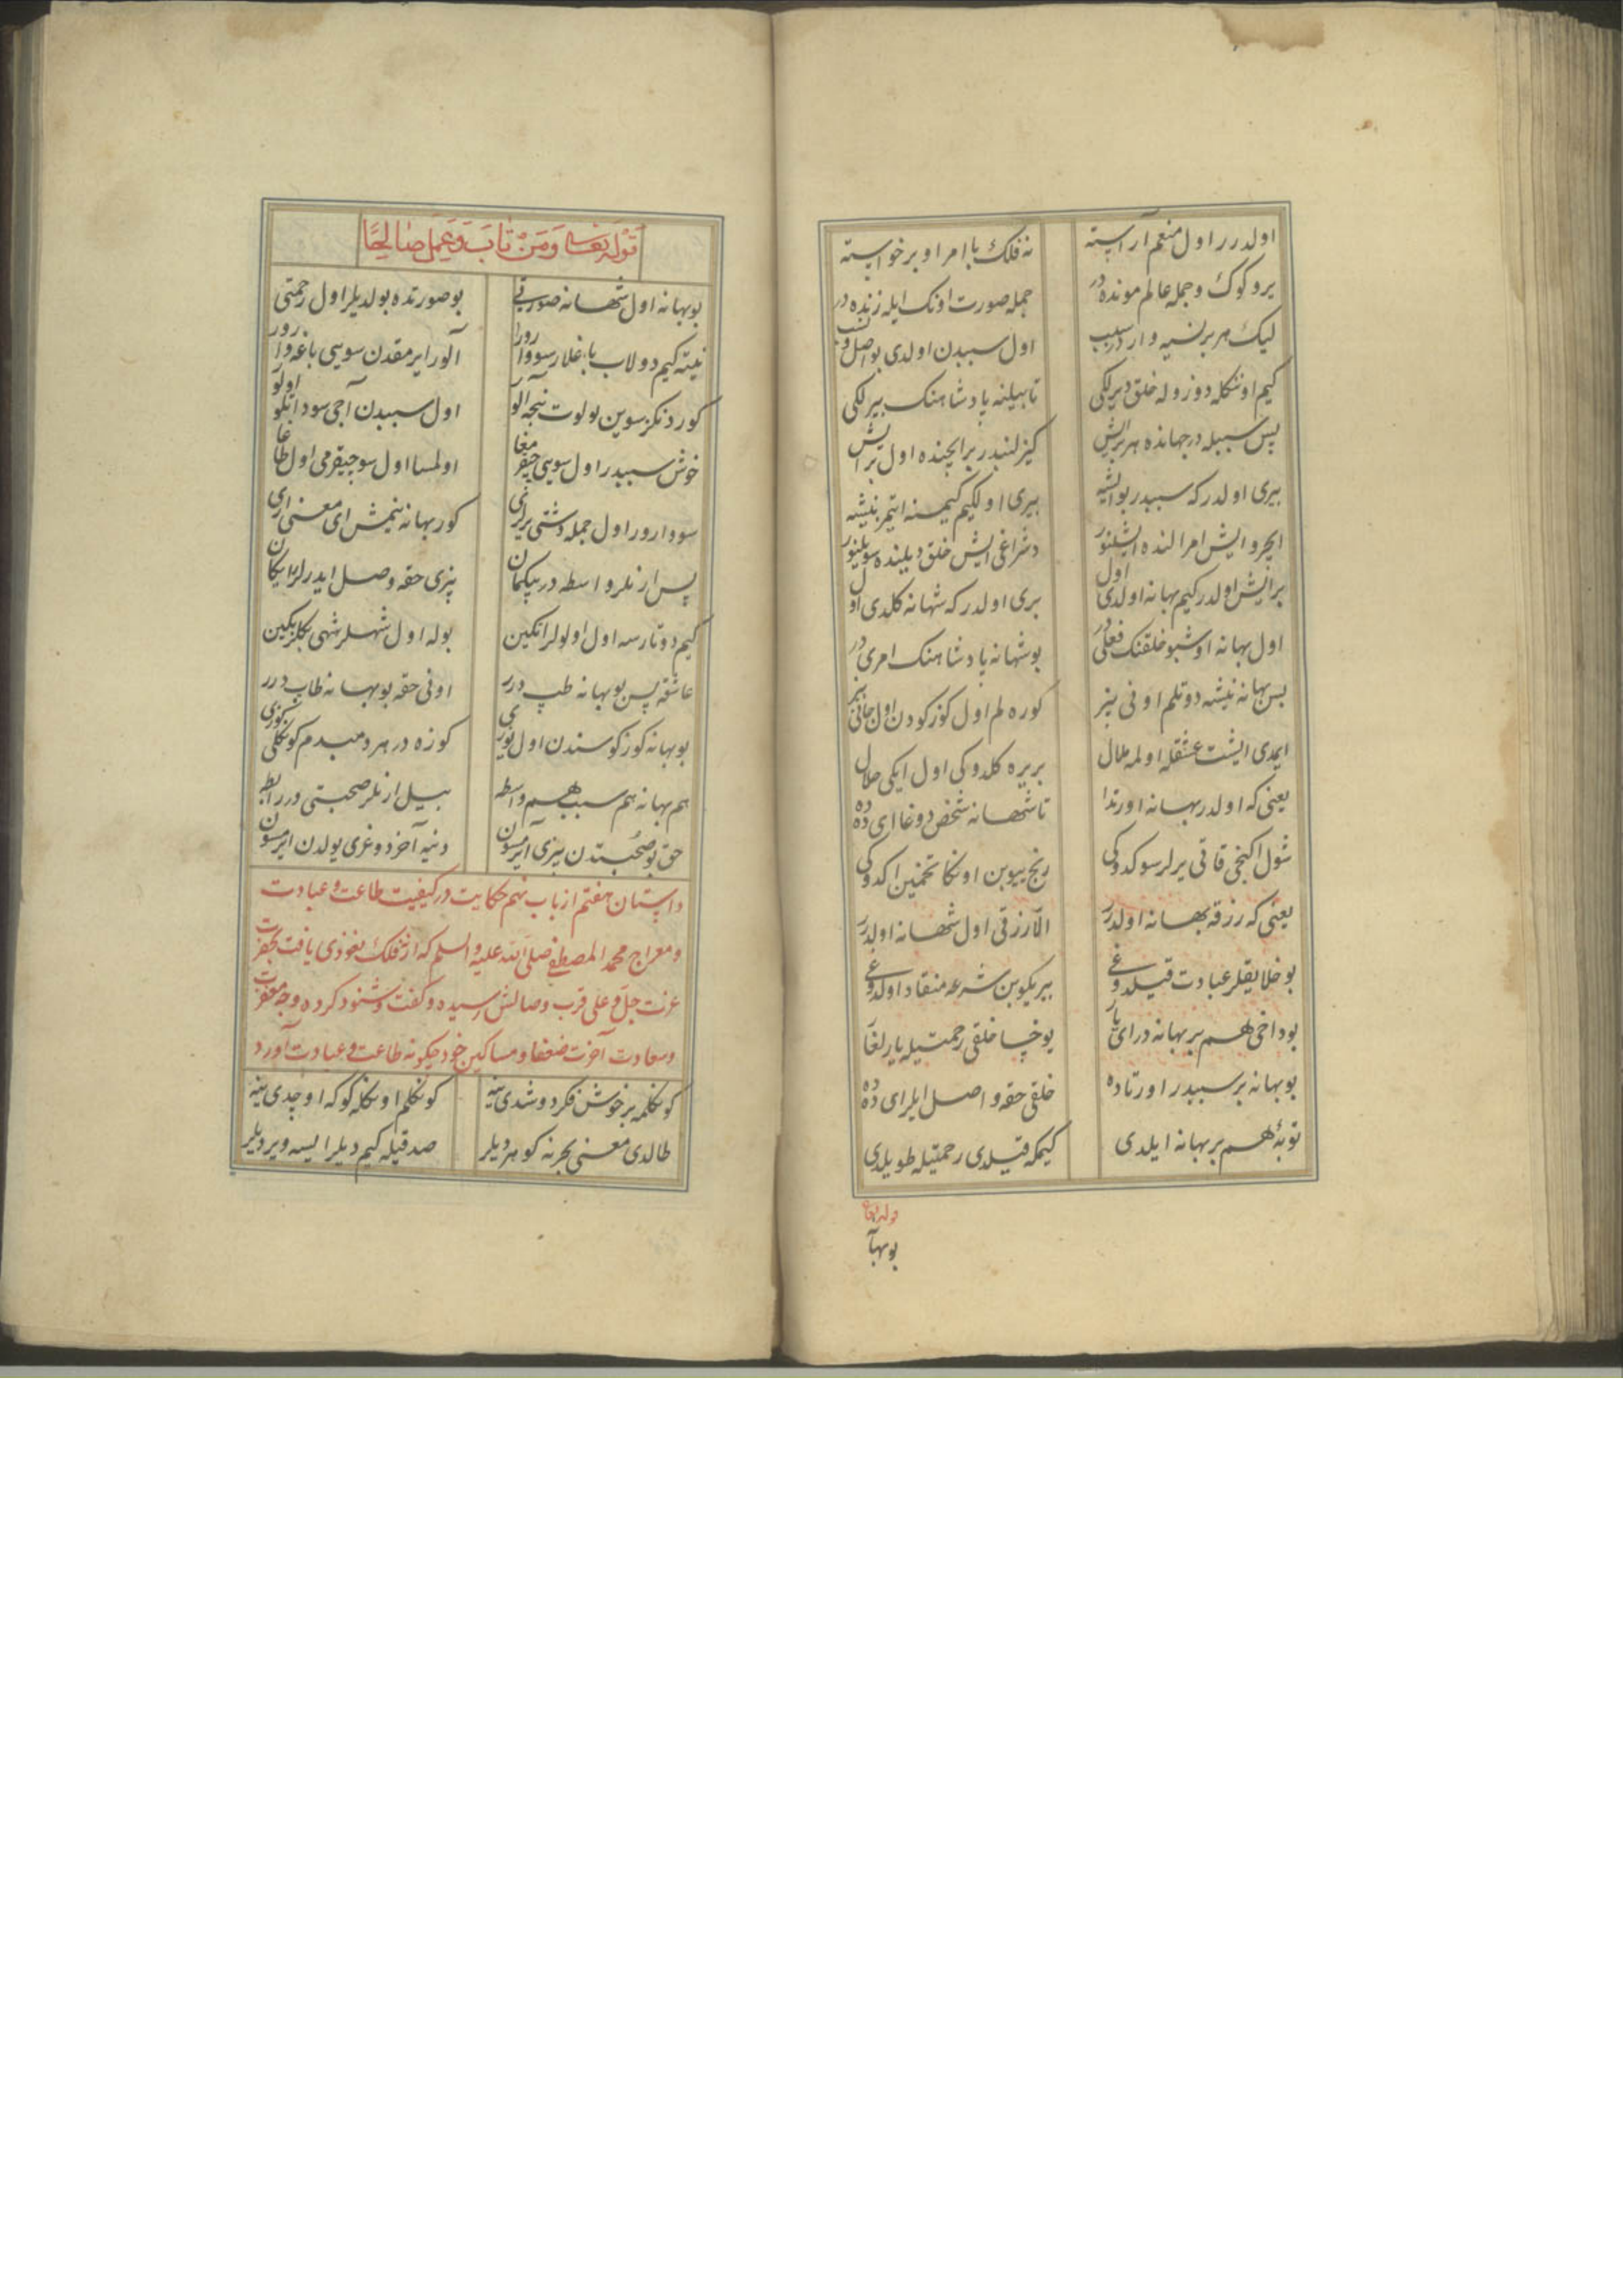 اولدرر اول منعم آراسته نه فلک با امر او برخواسته
یرو کوک و جمله عالم مونده در جمله صورت اونک ایله زنده در
لیک هر بر نسیه وار در سبب اول سببدن اولدی بو اصل و نسب
کیم اونکله دوزوله خلق دیرلکی تا بیلنه پادشاهنک بیرلکی
پس سببله در جهانده هر بر ایش کیزلنبدر بر ایچنده اول بر ایش
بیری اولدر که سببدر بو ایشه بیری اولکیم کیمسنه ایتمز نیشه
ایچرو ایش امر النده ایشلنور دشراغی ایش خلق دیلنده سویلنور
بر ایش اولدر کیم بهانه اولدی اول بری اولدر که شهانه کلدی اول
اول بهانه اوشبو خلقنک فعلی در بو شهانه پادشاهنک امری در
بس بهانه نیشه دوتلم اونی بیز کوره لم اول کوزکودن اول جانی بیز
ایمدی ایشت عشقله اولمه ملال بر یره کلدوکی اول ایکی حلال
یعنی که اولدر بهانه اورتدا تا شهانه شخص دوغا ای دده
شول اکنجی قاتی یرلر سوکدوکی رنج ییوبن اونکا تخمین اکدوکی
یعنی که رزقه بهانه اولدرر الا رزقی اول شهانه اولدرر
بو خلایقلر عبادت قیلدوغی بیریکوبن شرعه منقاد اولدوغی
بوداخی هم بر بهانه در ای یار یوخسا خلقی رحمتیله یارلغار
بو بهانه بر سببدر اورتاده خلقی حقه واصل ایلر ای دده
توبهٔ هم بر بهانه ایلدی کیمکه قیلدی رحمتیله طویلدی
قوله تعا
بو بها
قَوْلُهُ تَعَالَى وَمَنْ تَابَ وَعَمِلَ صَالِحًا
بو بهانه اول شهانه صورتی بو صورتده بولدیلر اول رحمتی
نیته کیم دولاب باغلار سو وارور آلور ایرمقدن سویی باغه وارور
کور دنکز سوین بولوت نیجه آلور اول سببدن آجی سو داتلو اولور
خوش سببدر اول سویی چیقرمغا اولمسا اول سو چیقرمی اول طاغا
سو وارور اول جمله دشتی یر ایری کور بهانه نیمش ای معنی اری
پس ارنلر واسطه در بیکمان بیزی حقه وصل ایدرلر رایکان
کیم دوتارسه اول اولولر اتکین بوله اول شهلر شهی بکلر بکین
عاشقه پس بو بهانه طپ درر اونی حقه بو بهانه طاپ درر
بو بهانه کوزکوسندن اول یوزی کوزه در هر دمبدم کونکلی کوزی
هم بهانه هم سبب هم واسطه بیل ارنلر صحبتی درر رابطه
حق بو صحبتدن بیزی آیرمسون دنیه آخر دوغری یولدن ایرمسون
داستان هفتم از باب نهم حکایت در کیفیت طاعت و عبادت
و معراج محمد المصطفی صلی الله علیه والسلم که از نه فلک نفوذی یافت بحضرت
عزت جل و علی قرب وصالش رسیده و کفت و شنود کرده و جه مغفرت
و سعادت آخرت ضعفا و مساکین خود چکونه طاعت و عبادت آورد
کونکلمه بر خوش فکر دوشدی ینه کونکلم اونکله کوکه اوچدی ینه
طالدی معنی بحرنه کوهر دیلر صدقیله کیم دیلر ایسه ویردیلر